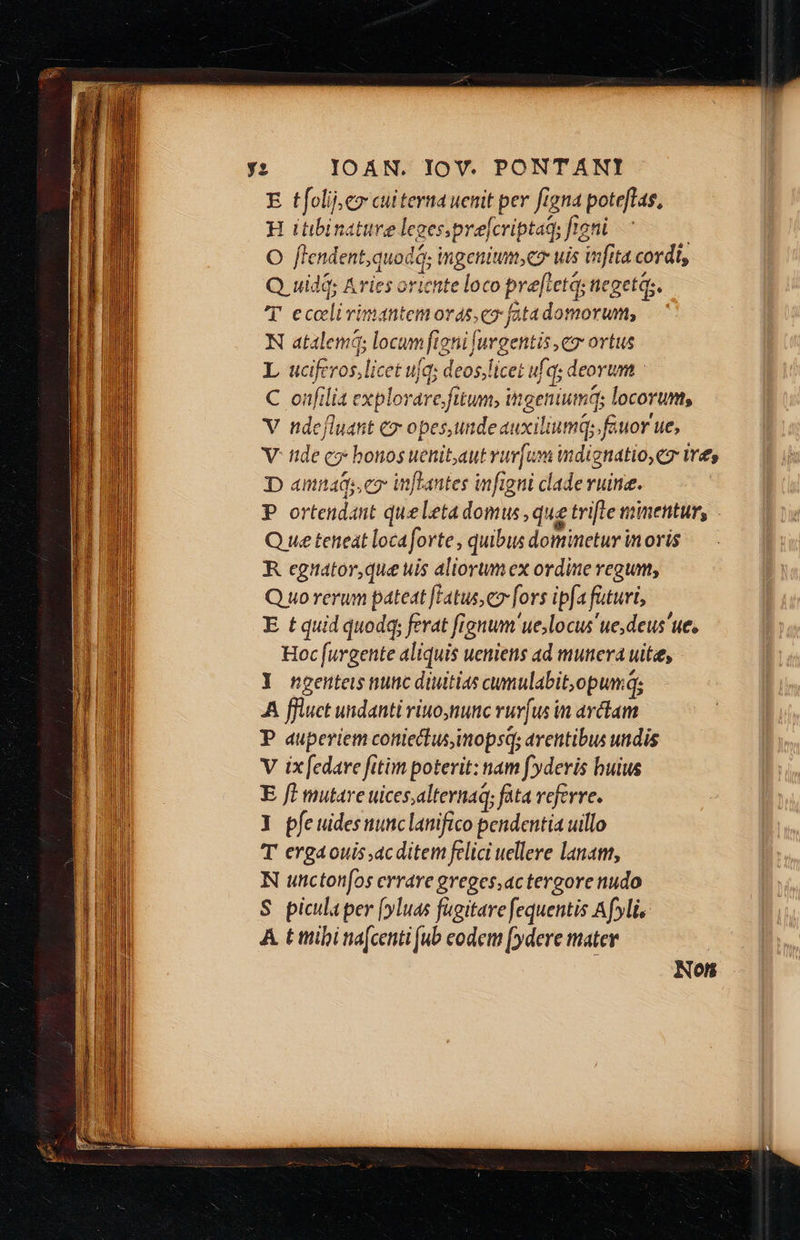 52 IOAN. IOV. PONTANI
E t ſolij, & cui terna uenit per ſigna poteſtas,
H i tibi naturæ leges, præſcriptaq; ſigni
O ſtendent, quodq; ingenium, & uis inſita cordi,
Q uidq; Aries oriente loco præſtetq; negetq;.
T e cœli rimantem oras, & fata domorum,
N atalemq; locum ſigni ſurgentis, & ortus
L uciferos, licet uſq; deos, licet uſq; deorum
C onſilia explorare, ſitum, ingeniumq; locorum,
V nde fluant & opes, unde auxiliumq;, fauor'ue,
V nde & honos uenit, aut rurſum indignatio, & iræ,
D amnaq;, & inſtantes inſigni clade ruinæ.
P ortendant quæ leta domus, quæ triſte minentur,
Q uæ teneat loca forte, quibus dominetur in oris
R egnator, quæ uis aliorum ex ordine regum,
Q uo rerum pateat ſtatus, & ſors ipſa futuri,
E t quid quodq; ferat ſignum'ue, locus'ue, deus'ue.
Hoc ſurgente aliquis ueniens ad munera uitæ,
I ngenteis nunc diuitias cumulabit, opumq;
A ffluet undanti riuo, nunc rurſus in arctam
P auperiem coniectus, inopsq; arentibus undis
V ix ſedare ſitim poterit: nam ſyderis huius
E ſt mutare uices, alternaq; fata referre.
I pſe uides nunc lanifico pendentia uillo
T erga ouis, ac ditem felici uellere lanam,
N unc tonſos errare greges, ac tergore nudo
S picula per ſyluas fugitare ſequentis Aſyli.
A t mihi naſcenti ſub eodem ſydere mater
Non